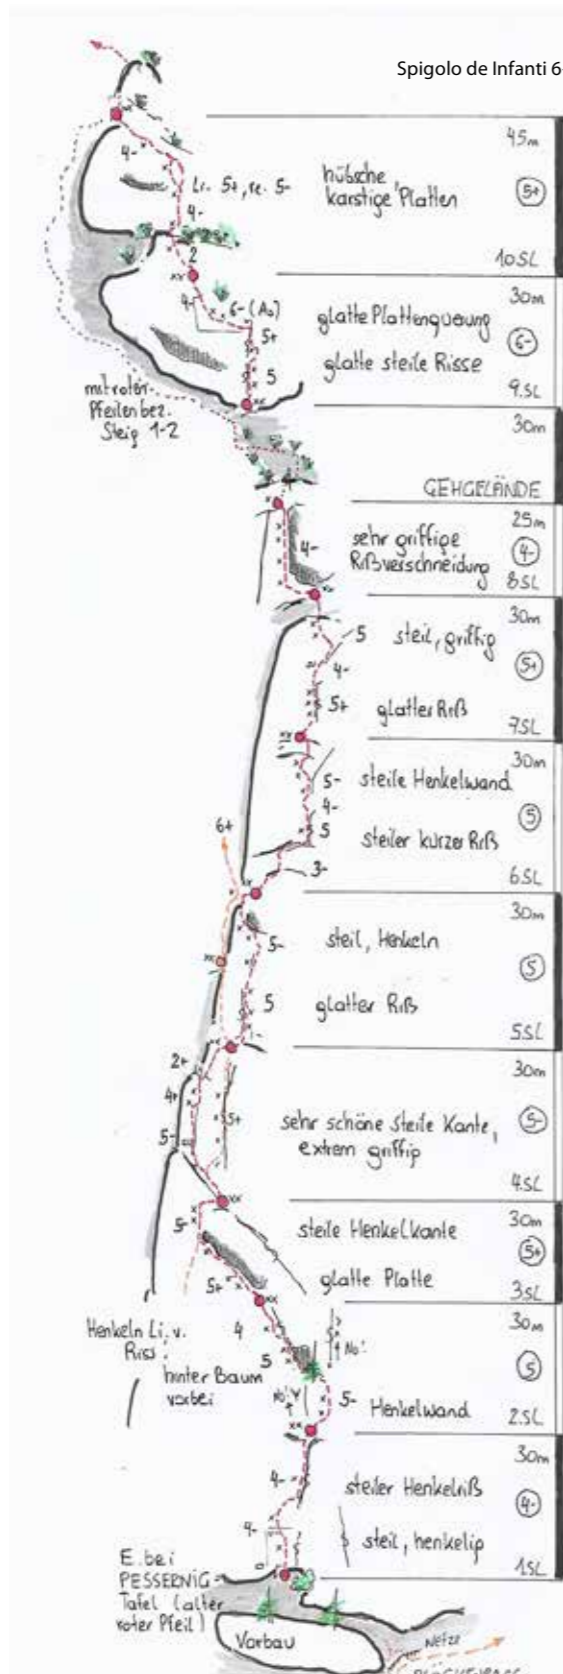 Spigolo de Infanti 6-
45m
4-
Li- 5+, re. 5-
hübsche
karstige Platten
5+
4-
10SL
2
30m
6- (A0)
4-
5+
glatte Plattenquerung
6-
glatte steile Risse
5
9.SL
mit roten
Pfeilen bez.
Steig 1-2
30m
GEHGELÄNDE
25m
4-
sehr griffige
Rißverschneidung
4-
8SL
30m
5
steil, griffig
4-
5+
5+
glatter Riß
7SL
30m
5-
steile Henkelwand
4-
5
5
steiler kurzer Riß
3-
6SL
6+
30m
5-
steil, Henkeln
5
5
glatter Riß
5SL
2+
30m
4+
5+
sehr schöne steile Kante,
extrem griffig
5-
5-
4.SL
5-
steile Henkelkante
30m
5+
5+
glatte Platte
3.SL
4
30m
Henkeln Li. v.
Riss
5
No!
5
hinter Baum
vorbei
No!
5-
Henkelwand
2.SL
30m
4-
steiler Henkelriß
4-
4-
steil, henkelig
1.SL
E. bei
PESSERNIG
Tafel (alter
roter Pfeil)
Vorbau
Netze